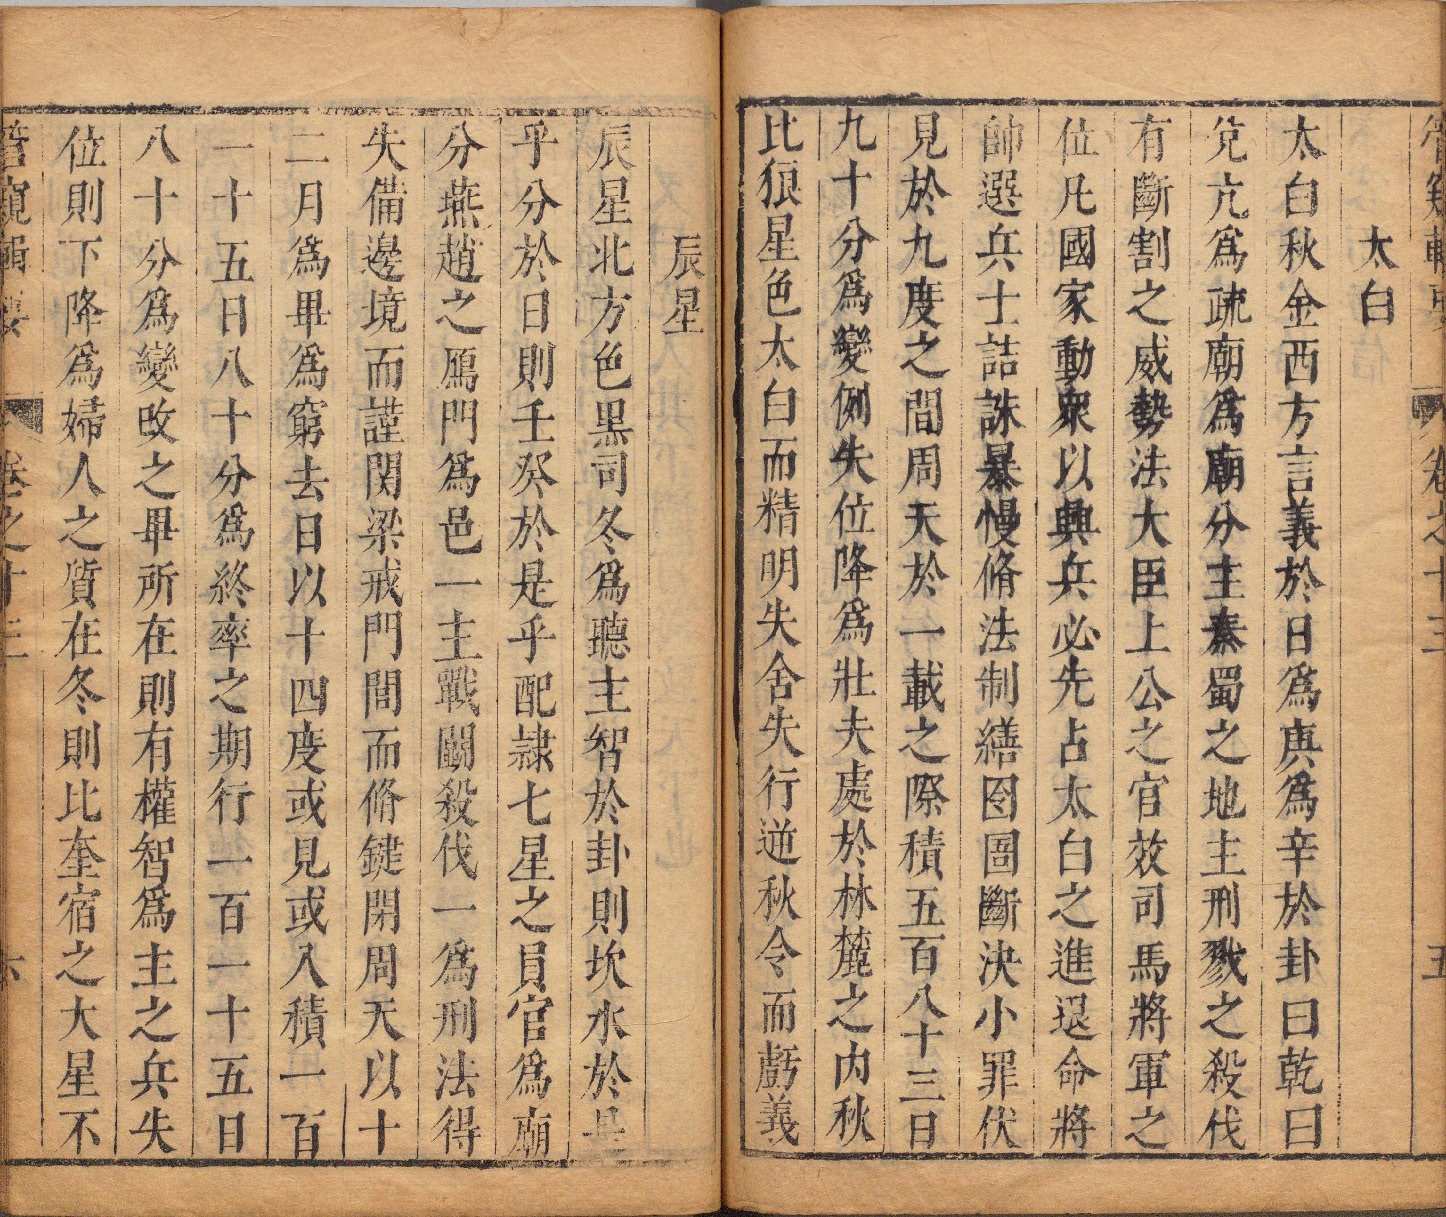 管窺輯要 卷之十三 五
太白
太白秋金西方言義於日爲庚爲辛於卦曰乾曰
兌亢爲疏廟爲廟分主秦蜀之地主刑戮之殺伐
有斷割之威勢法大臣上公之官效司馬將軍之
位凡國家動衆以興兵必先占太白之進退命將
帥選兵士詰誅暴慢脩法制繕囹圄斷決小罪伏
見於九度之間周天於一載之際積五百八十三日
九十分爲變例失位降爲壯夫處於林麓之內秋
比狼星色太白而精明失舍失行逆秋令而虧義
辰星
辰星北方色黑司冬爲聽主智於卦則坎水於是
乎分於日則壬癸於是乎配隷七星之員官爲廟
分燕趙之鴈門爲邑一主戰鬭殺伐一爲刑法得
失備邊境而謹関梁戒門閭而脩鍵閉周天以十
二月爲畢爲窮去日以十四度或見或入積一百
一十五日八十分爲終率之期行一百一十五日
八十分爲變改之畢所在則有權智爲主之兵失
位則下降爲婦人之質在冬則比奎宿之大星不
管窺輯要 卷之十三 六